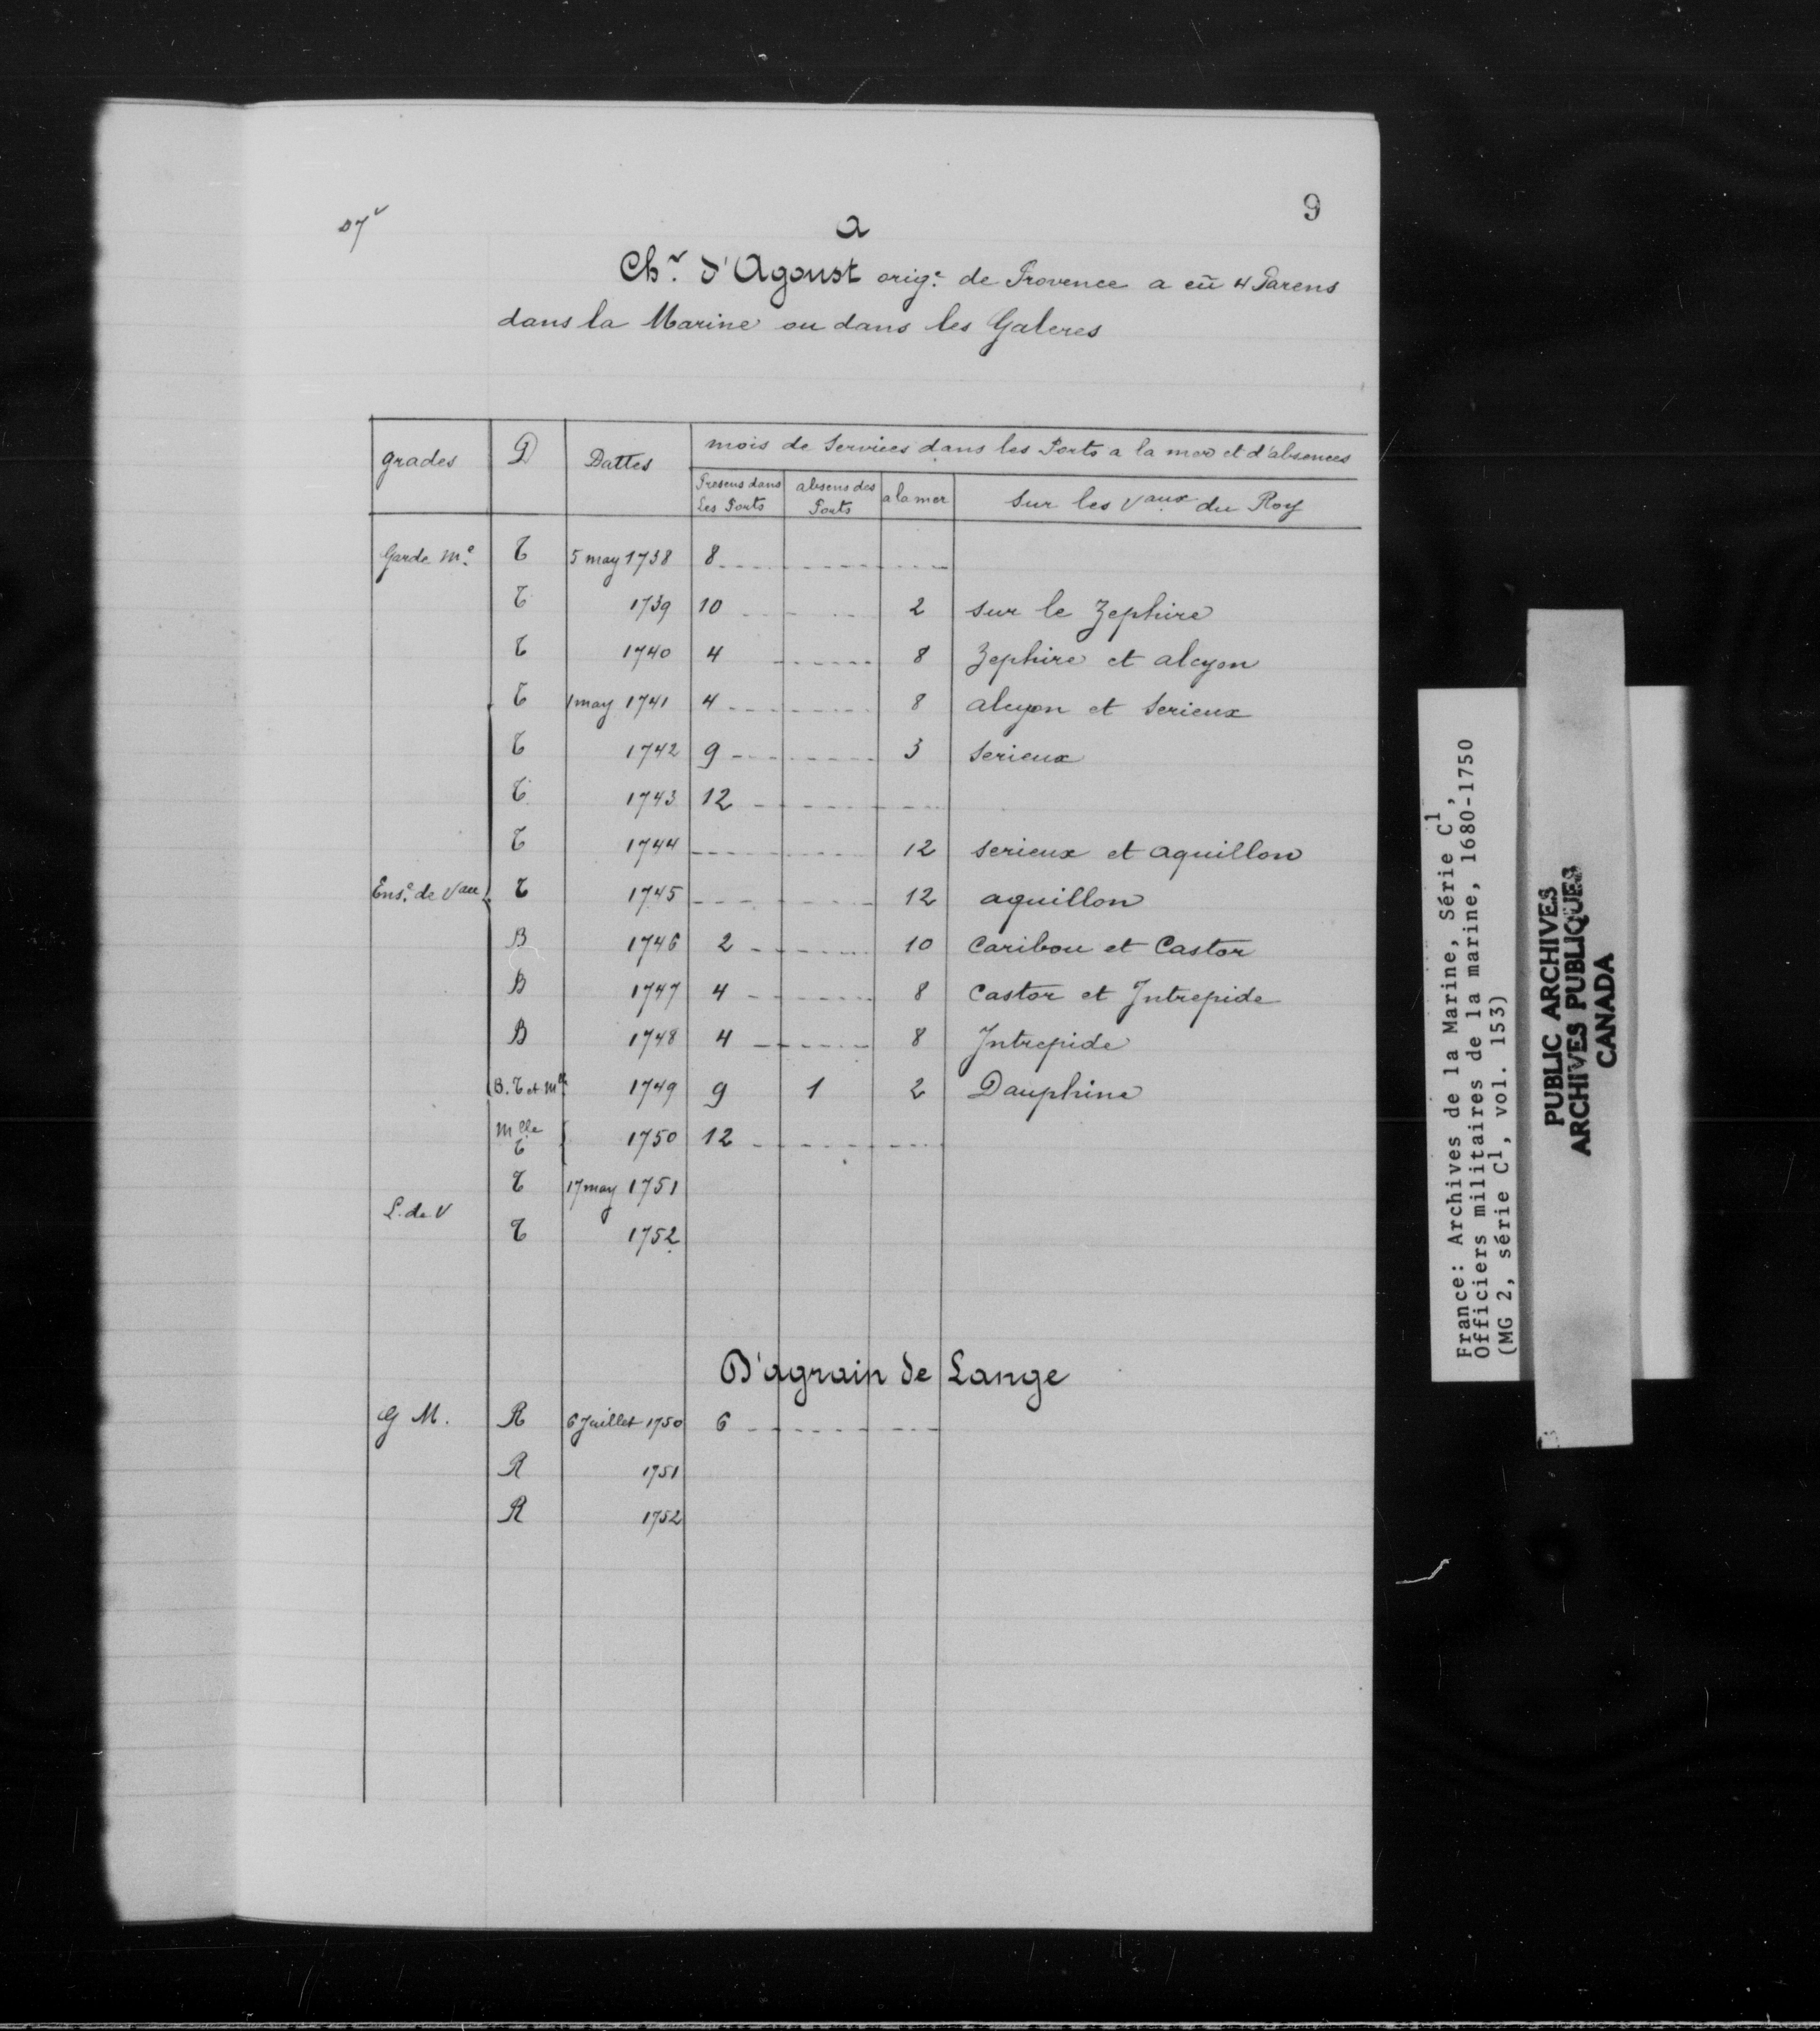 9
a
Chr. d'Agoust orige. de Provence a eū 4 Parens
dans la Marine ou dans les Galeres
grades D Dattes mois de Services dans les Ports a la mer et d'absences
Presens dans Les Ports absens des Ports a la mer Sur les Vaux du Roy
Garde Me. T 5 may 1738 8
T 1739 10 2 sur le Zephire
T 1740 4 8 Zephire et alcyon
T 1 may 1741 4 8 alcyon et Serieux
T 1742 9 3 Serieux
T 1743 12
T 1744 12 serieux et aquillon
Ense. de Vau T 1745 12 aquillon
B 1746 2 10 Caribou et Castor
B 1747 4 8 Castor et Intrepide
B 1748 4 8 Intrepide
B. T et Mlle 1749 9 1 2 Dauphine
Mlle T 1750 12
T 17 may 1751
L. de V
T 1752
D'agrain de Lange
G M. R 6 Juillet 1750 6
R 1751
R 1752
France: Archives de la Marine, Série C1,
Officiers militaires de la marine, 1680-1750
(MG 2, série C1, vol. 153)
PUBLIC ARCHIVES
ARCHIVES PUBLIQUES
CANADA